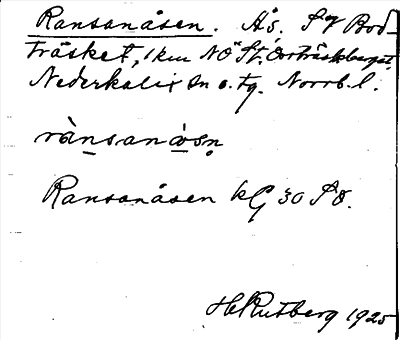 Ransanåsen. Ås. SV Bod-
träsket, 1 km NÖ St. Orrträskberget.
Nederkalix sn o. tg. Norrb. l.
rànsanåsn
Ransanåsen kG 30 SÖ.
H Rutberg 1925